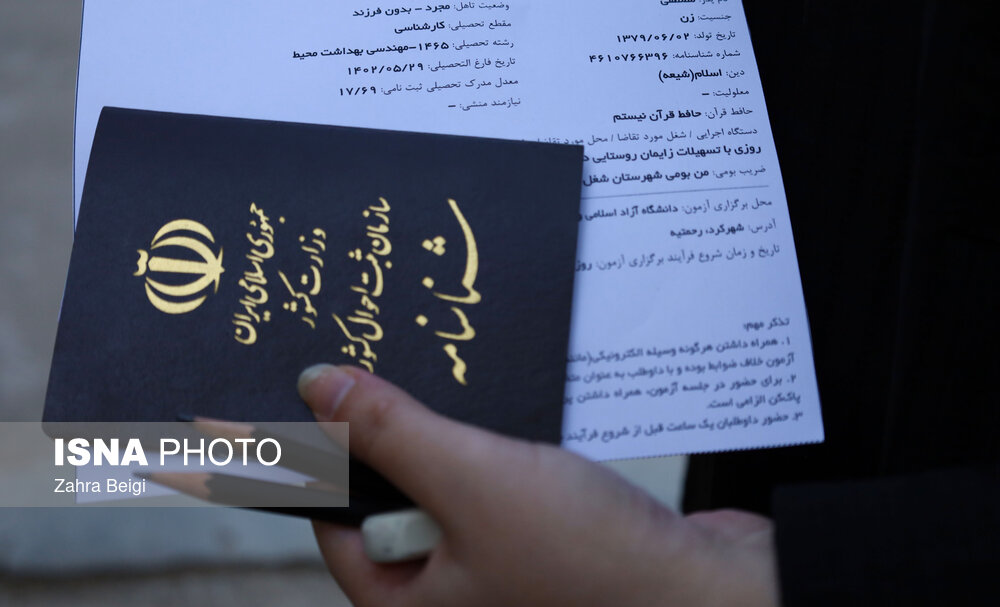 نام پدر:
جنسیت: زن
تاریخ تولد: ۱۳۷۹/۰۶/۰۲
شماره شناسنامه: ۴۶۱۰۷۶۶۳۹۶
دین: اسلام(شیعه)
معلولیت: –
حافظ قرآن: حافظ قرآن نیستم
دستگاه اجرایی / شغل مورد تقاضا / محل مورد تقاضا
روزی با تسهیلات زایمان روستایی
ضریب بومی: من بومی شهرستان شغل
محل برگزاری آزمون: دانشگاه آزاد اسلامی
آدرس: شهرکرد، رحمتیه
تاریخ و زمان شروع فرآیند برگزاری آزمون: روز
وضعیت تاهل: مجرد – بدون فرزند
مقطع تحصیلی: کارشناسی
رشته تحصیلی: ۱۴۶۵–مهندسی بهداشت محیط
تاریخ فارغ التحصیلی: ۱۴۰۲/۰۵/۲۹
معدل مدرک تحصیلی ثبت نامی: ۱۷/۶۹
نیازمند منشی: –
تذکر مهم:
۱. همراه داشتن هرگونه وسیله الکترونیکی(مانند
آزمون خلاف ضوابط بوده و با داوطلب به عنوان
۲. برای حضور در جلسه آزمون، همراه داشتن
پاک‌کن الزامی است.
۳. حضور داوطلبان یک ساعت قبل از شروع فرآیند
جمهوری اسلامی ایران
وزارت کشور
سازمان ثبت احوال کشور
شناسنامه
ISNA PHOTO
Zahra Beigi